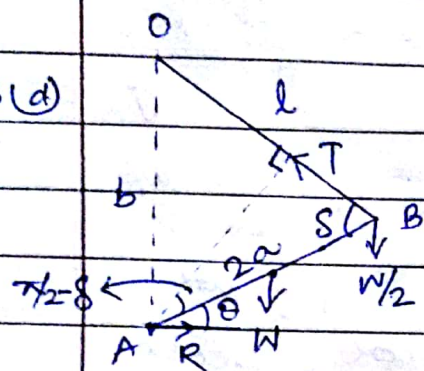 O
(d)
l
T
b
S
B
2a
W/2
π/2-δ
θ
A
R
W